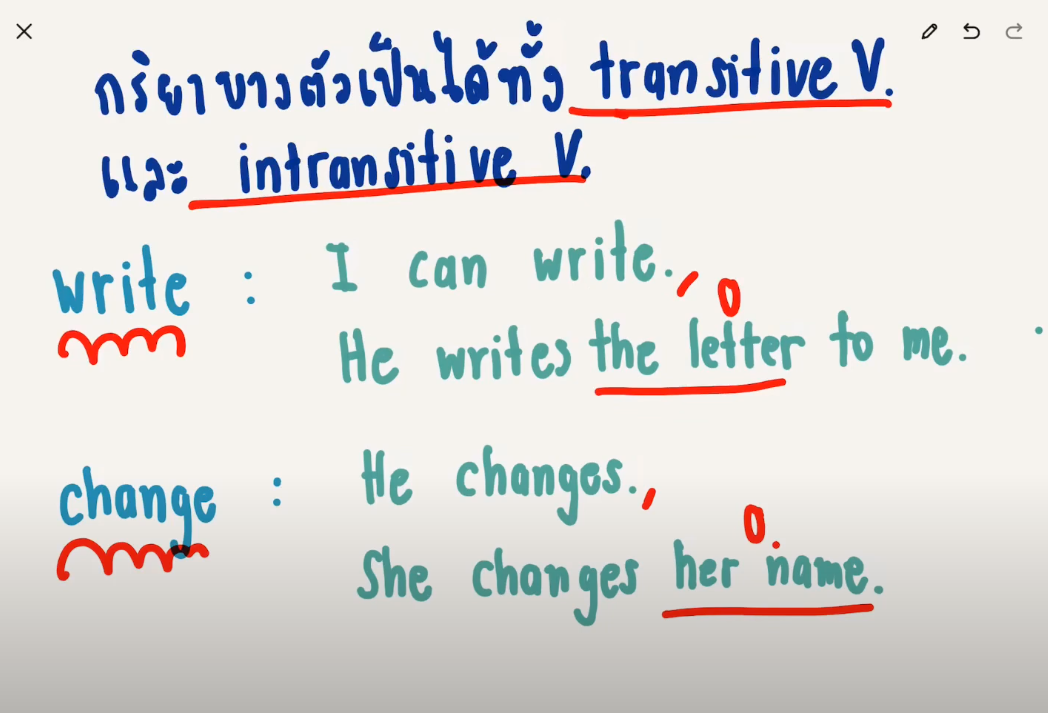 กริยาบางตัวเป็นได้ทั้ง transitive V.
และ intransitive V.
write : I can write.
O
He writes the letter to me.
change : He changes.
O.
She changes her name.